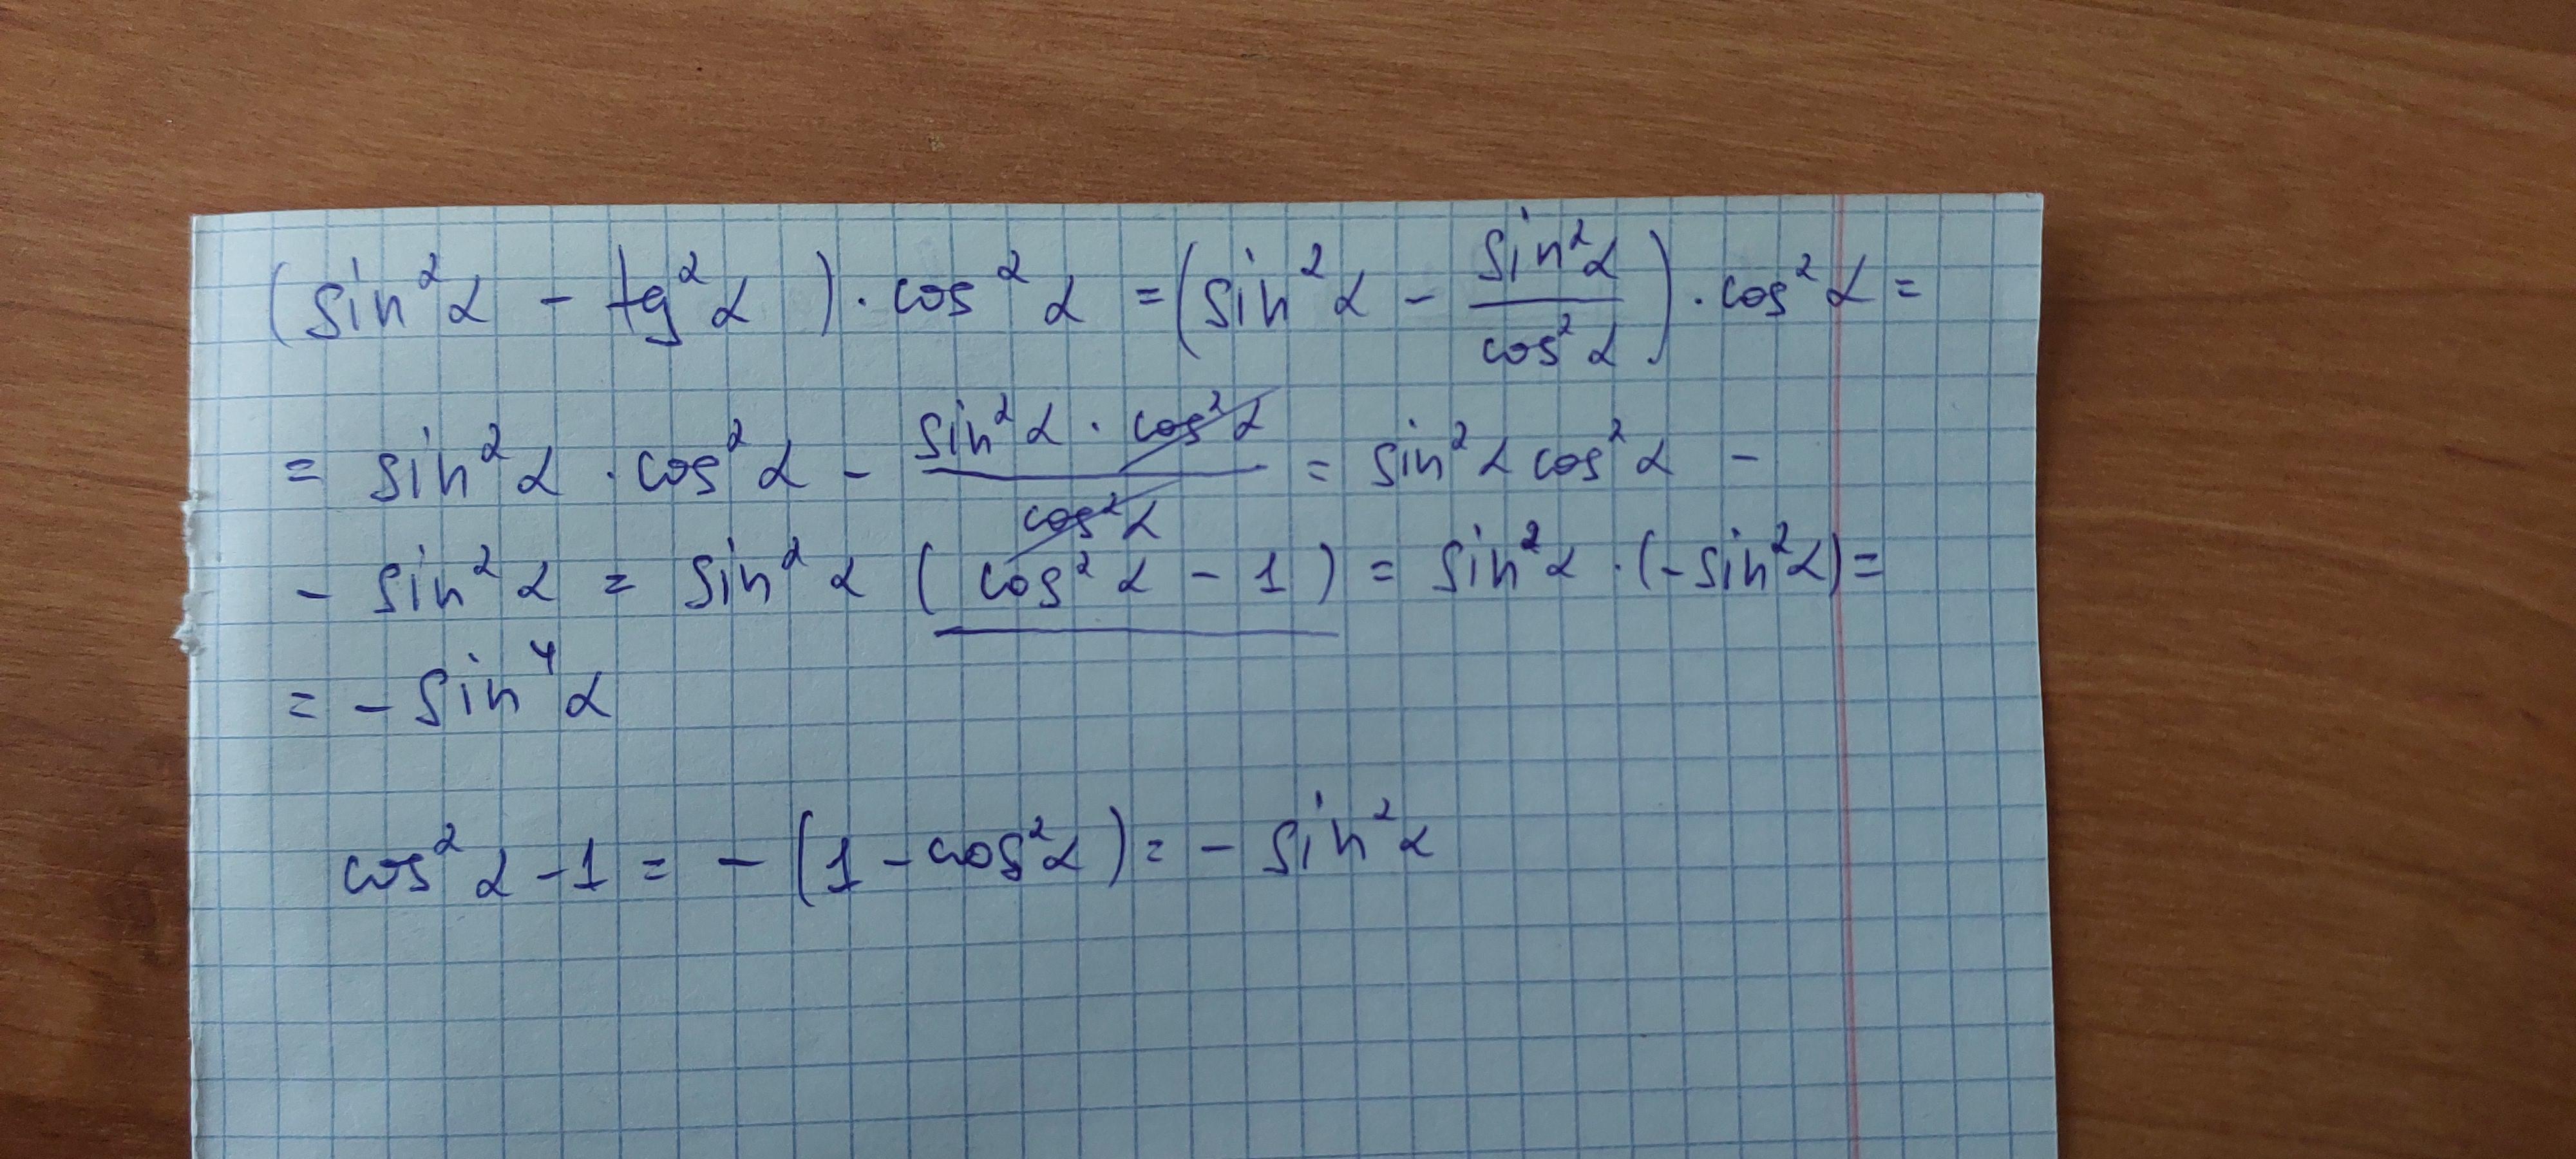 (sin²α - tg²α) · cos²α = (sin²α - sin²α/cos²α) · cos²α =
= sin²α · cos²α - sin²α · cos²α/cos²α = sin²α cos²α -
- sin²α = sin²α (cos²α - 1) = sin²α · (-sin²α) =
= - sin⁴α
cos²α - 1 = - (1 - cos²α) = - sin²α